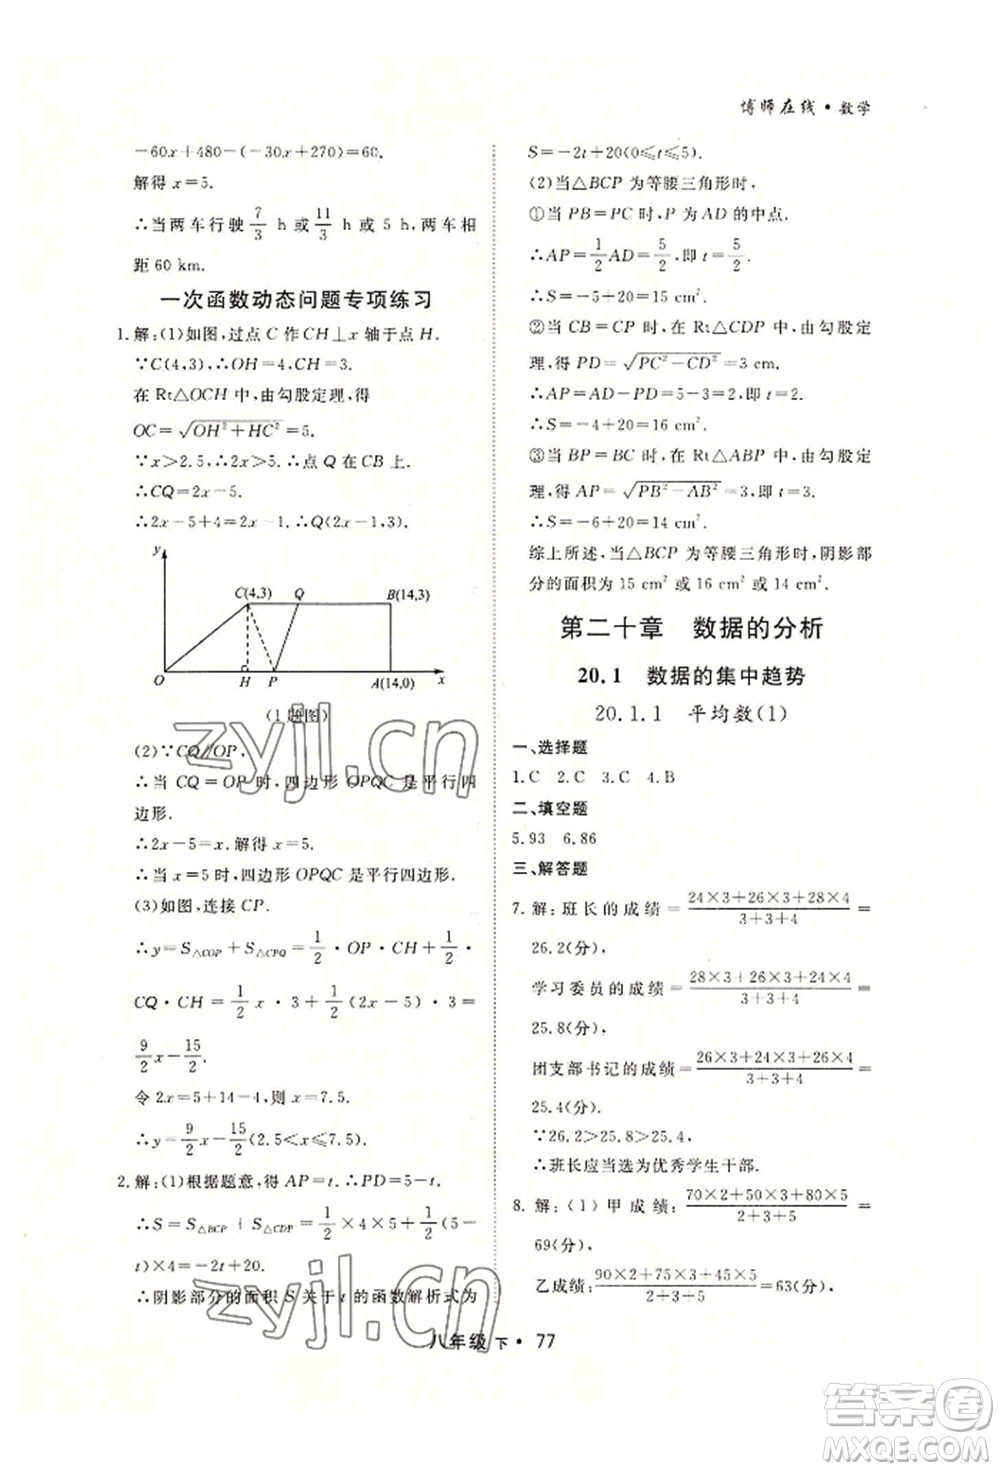 博师在线·数学
－60x＋480－(－30x＋270)＝60.
解得 x＝5.
∴当两车行驶 7/3 h 或 11/3 h 或 5 h 时，两车相
距 60 km.
一次函数动态问题专项练习
1.解:(1)如图,过点 C 作 CH⊥x 轴于点 H.
∵C(4,3),∴OH＝4,CH＝3.
在 Rt△OCH 中,由勾股定理,得
OC＝√(OH²＋HC²)＝5.
∵x＞2.5,∴2x＞5.∴点 Q 在 CB 上.
∴CQ＝2x－5.
∴2x－5＋4＝2x－1.∴Q(2x－1,3).
y
C(4,3) Q B(14,3)
O H P A(14,0) x
(1 题图)
(2)∵CQ∥OP,
∴当 CQ＝OP 时,四边形 OPQC 是平行四
边形.
∴2x－5＝x.解得 x＝5.
∴当 x＝5 时,四边形 OPQC 是平行四边形.
(3)如图,连接 CP.
∴y＝S△COP＋S△CPQ＝1/2·OP·CH＋1/2·
CQ·CH＝1/2x·3＋1/2(2x－5)·3＝
9/2x－15/2.
令 2x＝5＋14－4,则 x＝7.5.
∴y＝9/2x－15/2(2.5＜x≤7.5).
2.解:(1)根据题意,得 AP＝t,PD＝5－t.
∴S＝S△BCP＋S△CDP＝1/2×4×5＋1/2(5－
t)×4＝－2t＋20.
∴阴影部分的面积 S 关于 t 的函数解析式为
S＝－2t＋20(0≤t≤5).
(2)当△BCP 为等腰三角形时,
①当 PB＝PC 时,P 为 AD 的中点.
∴AP＝1/2AD＝5/2,即 t＝5/2.
∴S＝－5＋20＝15 cm².
②当 CB＝CP 时,在 Rt△CDP 中,由勾股定
理,得 PD＝√(PC²－CD²)＝3 cm.
∴AP＝AD－PD＝5－3＝2,即 t＝2.
∴S＝－4＋20＝16 cm².
③当 BP＝BC 时,在 Rt△ABP 中,由勾股定
理,得 AP＝√(PB²－AB²)＝3,即 t＝3.
∴S＝－6＋20＝14 cm².
综上所述,当△BCP 为等腰三角形时,阴影部
分的面积为 15 cm² 或 16 cm² 或 14 cm².
第二十章 数据的分析
20.1 数据的集中趋势
20.1.1 平均数(1)
一、选择题
1.C 2.C 3.C 4.B
二、填空题
5.93 6.86
三、解答题
7.解:班长的成绩＝(24×3＋26×3＋28×4)/(3＋3＋4)＝
26.2(分),
学习委员的成绩＝(28×3＋26×3＋24×4)/(3＋3＋4)＝
25.8(分),
团支部书记的成绩＝(26×3＋24×3＋26×4)/(3＋3＋4)＝
25.4(分).
∵26.2＞25.8＞25.4,
∴班长应当选为优秀学生干部.
8.解:(1)甲成绩:(70×2＋50×3＋80×5)/(2＋3＋5)＝
69(分),
乙成绩:(90×2＋75×3＋45×5)/(2＋3＋5)＝63(分),
八年级 下·77
zyjl.cn
zyjl.cn
答案圈
MXQE.COM